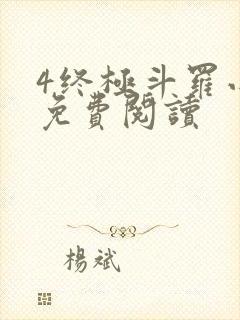 4终極斗羅
免費閱讀
楊斌